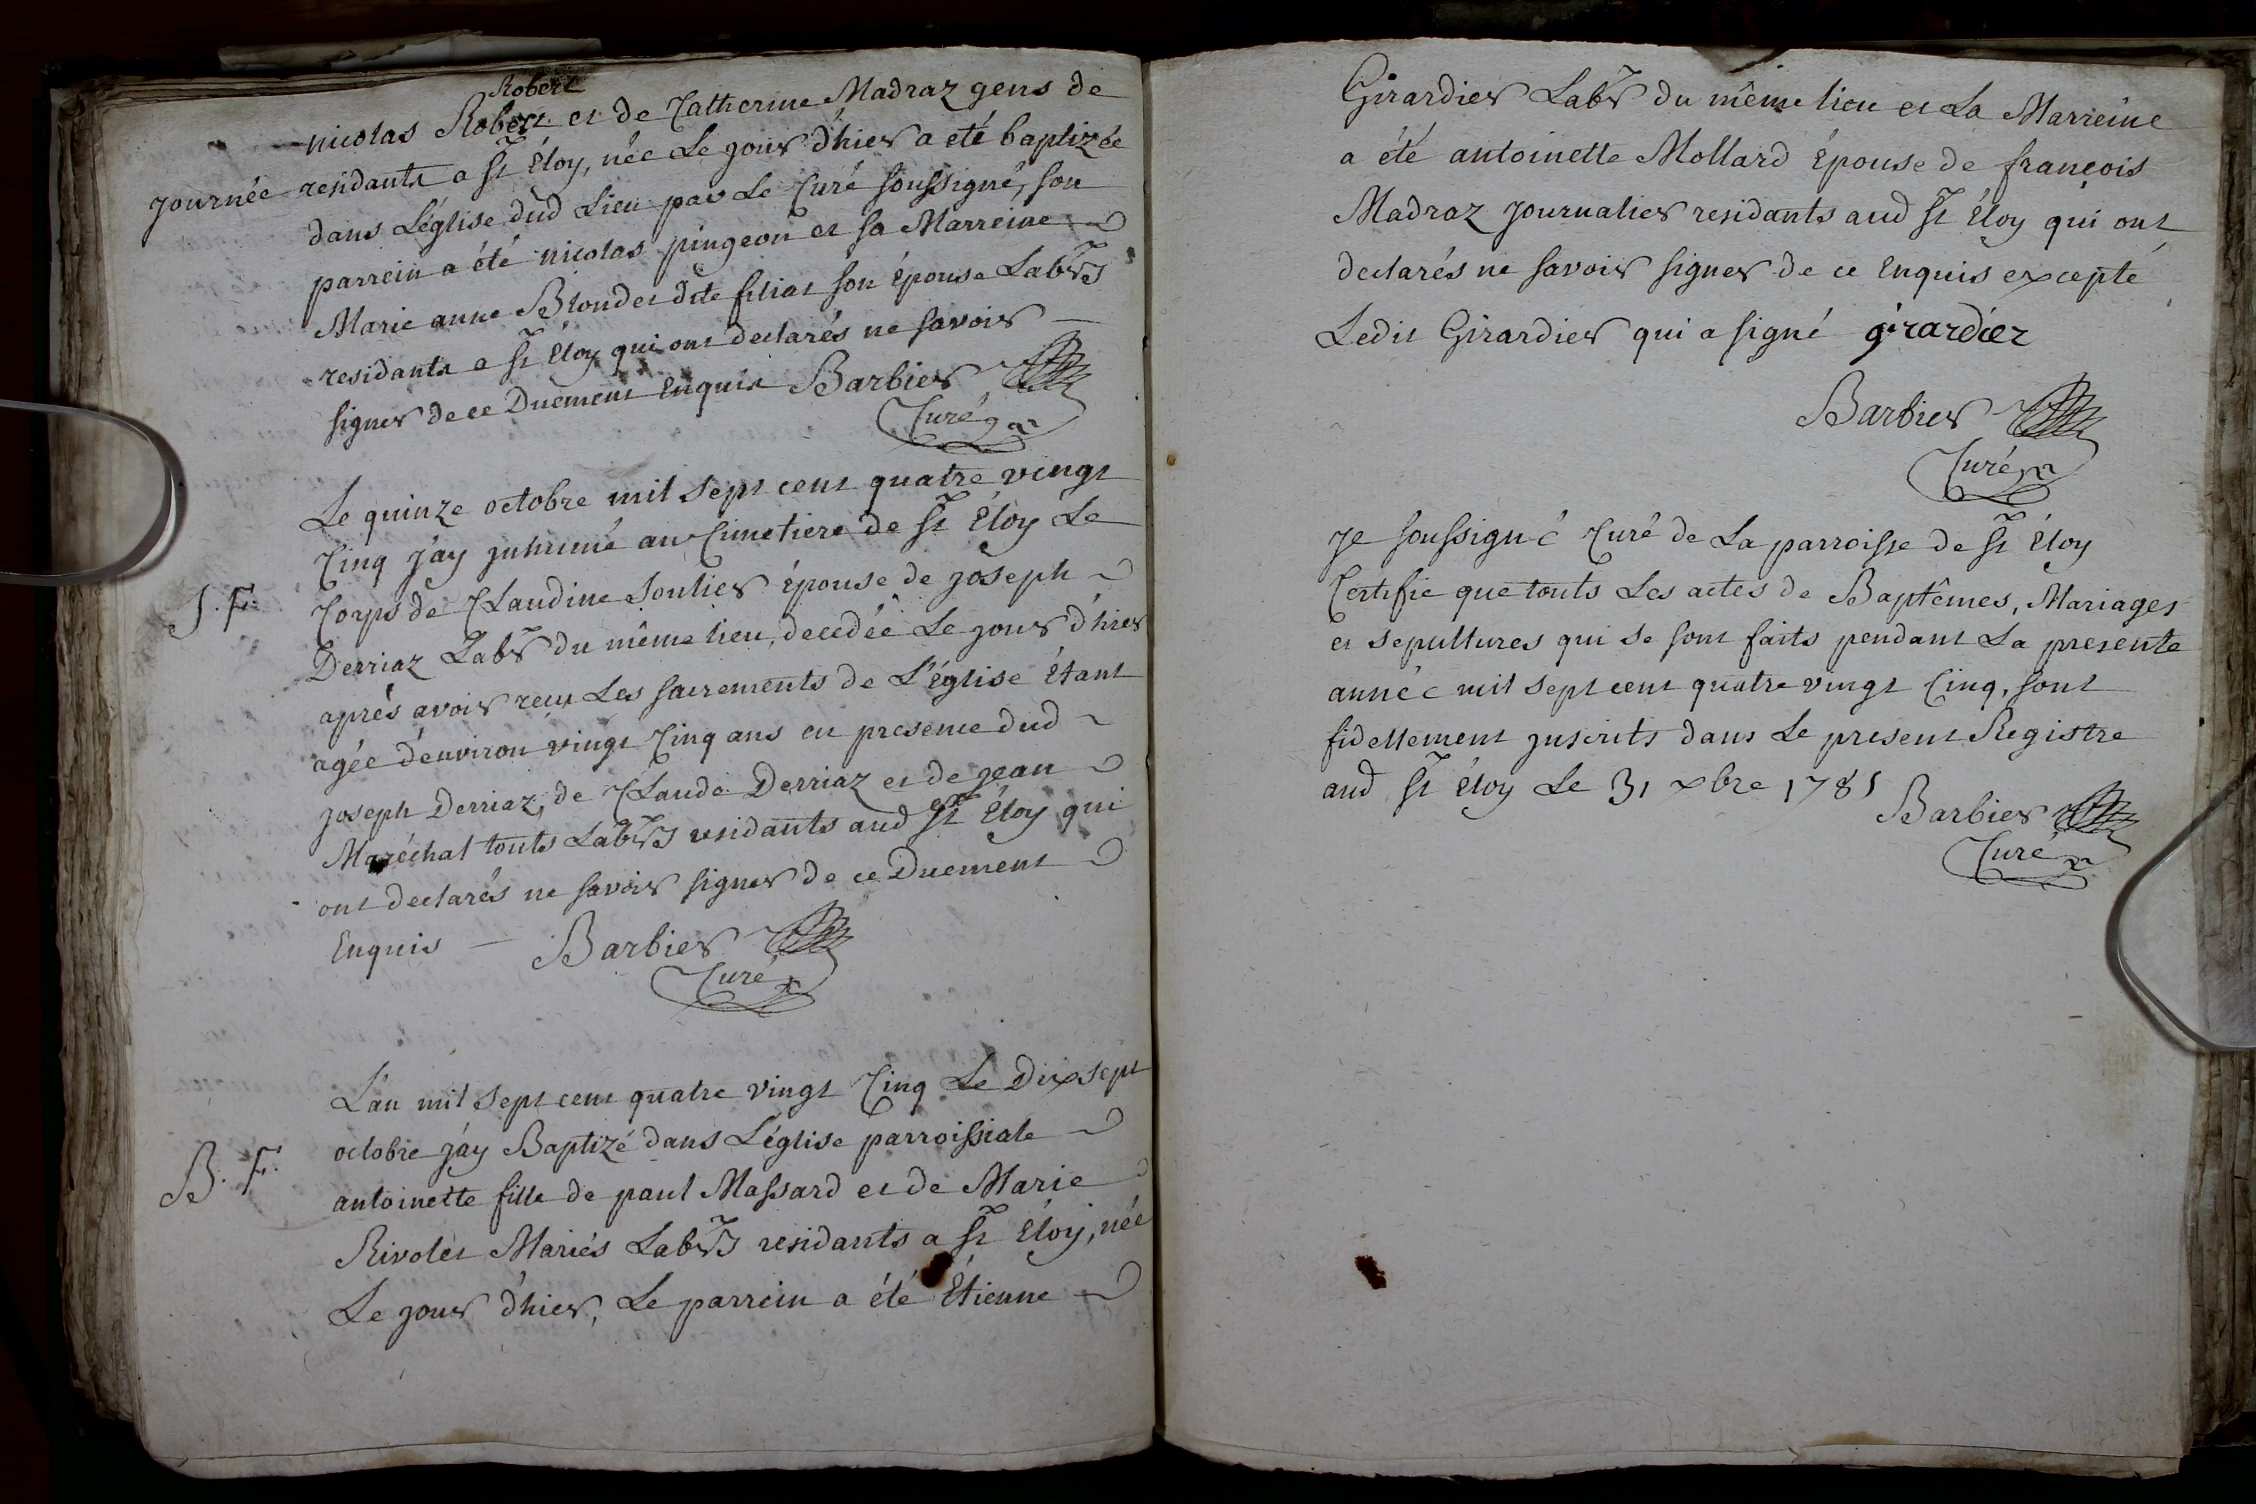 Robert
nicolas Robert et de Catherine Madraz gens de
journée residants a St Éloy, née Le jour d'hier a eté baptizée
dans L'église dud Lieu par Le Curé soussigné, son
parrein a été nicolas pingeon et sa Marreine
Marie anne Blondet dite filiat son épouse Labrs
residants a St Éloy qui ont declarés ne savoir
signer de ce Duement Enquis Barbier
Curé
Le quinze octobre mil sept cent quatre vingt
Cinq j'ay inhumé au Cimetiere de St Éloy Le
J. F. Corps de Claudine Soulier épouse de joseph
Derriaz Labr du même lieu, decedée Le jour d'hier
aprés avoir reçu Les sacrements de L'église étant
agée d'environ vingt Cinq ans en presence dud
joseph Derriaz, de Claude Derriaz et de jean
Maréchal touts Labrs residants aud St Éloy qui
ont declarés ne savoir signer de ce Duement
Enquis — Barbier
Curé
L'an mil sept cent quatre vingt Cinq Le Dix sept
octobre j'ay Baptizé dans L'église parroissiale
B. F. antoinette fille de paul Massard et de Marie
Rivolet Mariés Labrs residants a St Éloy, née
Le jour d'hier, Le parrein a été Étienne
Girardier Labr du même lieu et La Marreine
a été antoinette Mollard épouse de françois
Madraz journalier residants aud St Éloy qui ont
declarés ne savoir signer de ce Enquis excepté
Ledit Girardier qui a signé girardiez
Barbier
Curé
je soussigné Curé de La parroisse de St Éloy
Certifie que touts Les actes de Baptêmes, Mariages
et sepultures qui se sont faits pendant La presente
année mil sept cent quatre vingt Cinq, sont
fidellement inscrits dans Le present Registre
aud St Éloy Le 31 xbre 1785
Barbier
Curé